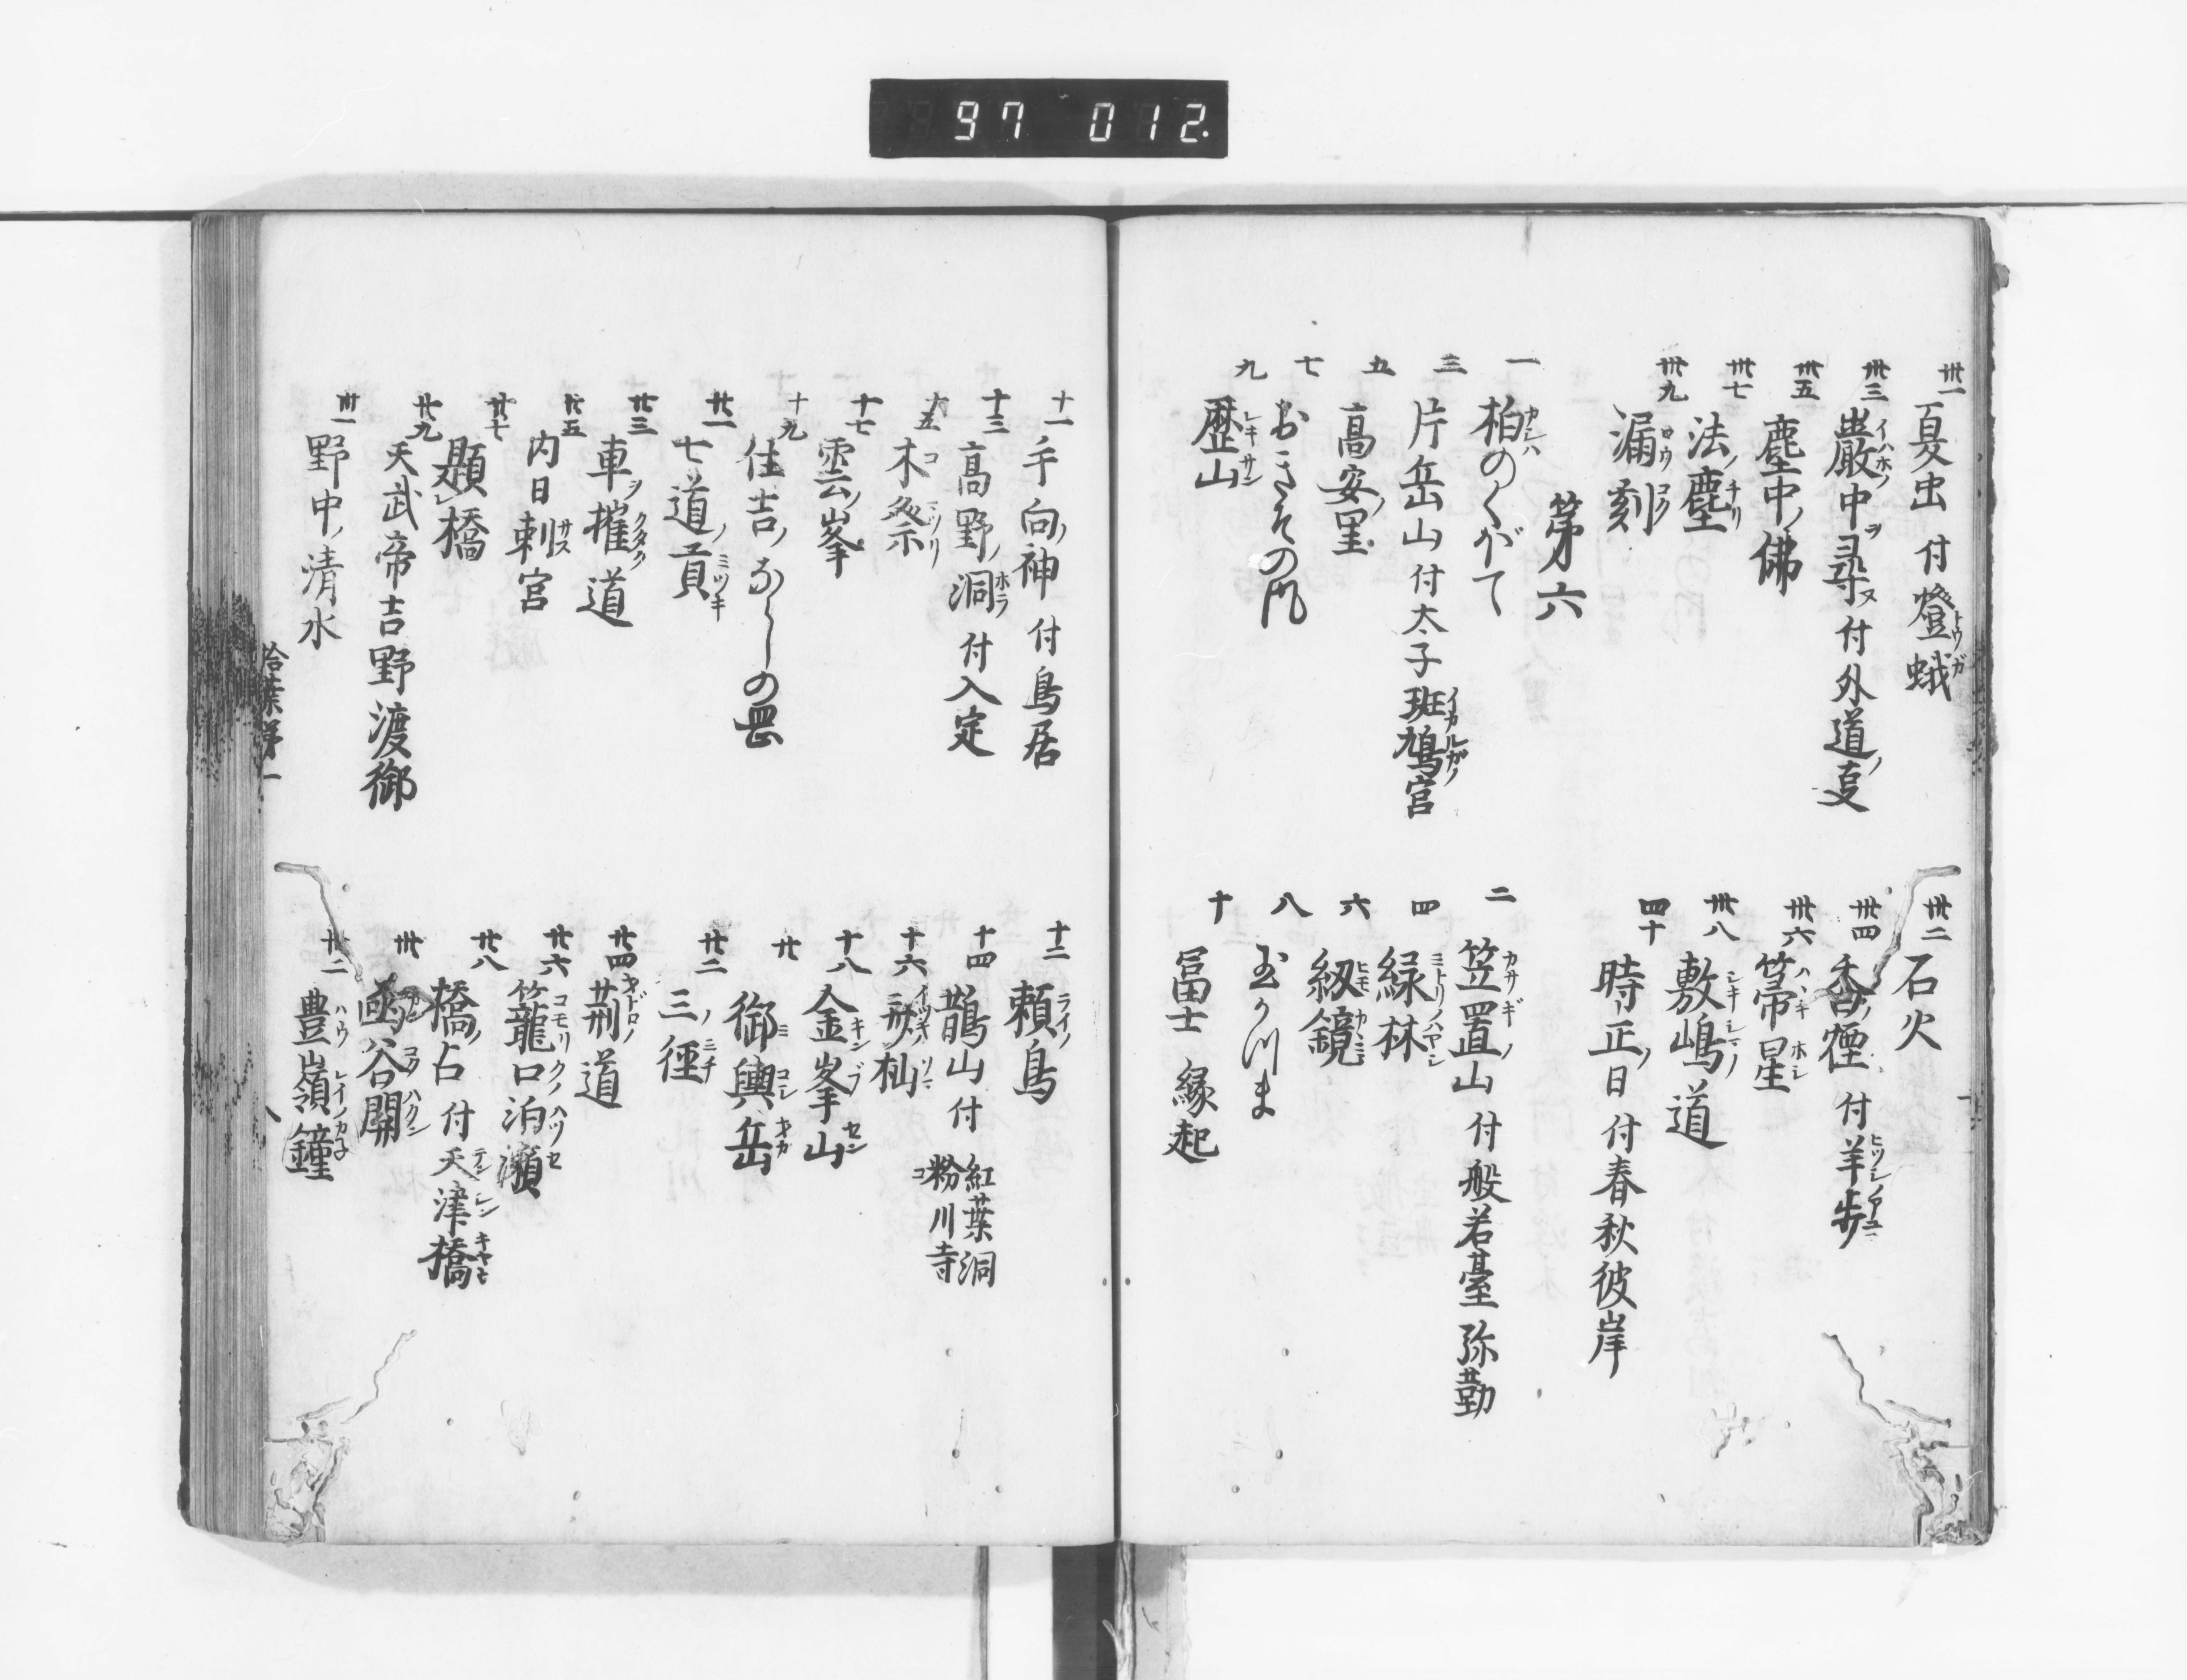 97 012.
卅一 夏虫 付 燈蛾
卅二 石火
卅三 巌中ヲ尋ヌ 付 外道ノ㕝
卅四 香ノ煙 付 羊歩
卅五 塵中ノ佛
卅六 箒星
卅七 法ノ塵
卅八 敷嶋ノ道
卅九 漏刻
四十 時正ノ日 付 春秋彼岸
第六
一 柏のくがて
二 笠置ノ山 付 般若臺 弥勒
三 片岳山 付 太子 斑鳩宮
四 緑林
五 高安ノ里
六 紐鏡
七 おきその風
八 玉かつま
九 歴山
十 冨士 縁起
十一 手向ノ神 付 鳥居
十二 頼鳥
十三 高野ノ洞 付 入定
十四 鵲山 付 紅葉洞 粉川寺
十五 木祭
十六 杣
十七 雲ノ峯
十八 金峯山
十九 住吉ノならしの罡
廿 御輿岳
廿一 七道ノ貢
廿二 三ノ径
廿三 車ヲ摧ク道
廿四 荆道
廿五 内日刺宮
廿六 籠口泊瀬
廿七 顕レ橋
廿八 橋ノ占 付 天津橋
廿九 天武帝吉野渡御
卅 凾谷関
卅一 野中ノ清水
卅二 豊嶺鐘
拾葉第一
八